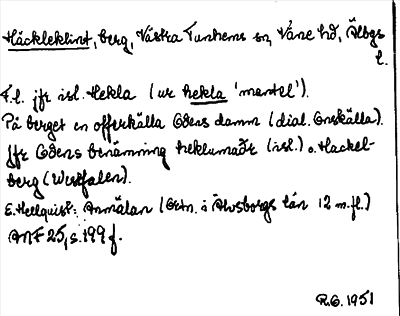 Häckleklint, berg, Västra Tunhems sn, Väne hd, Älvsbgs
l.
F.l. jfr isl. Hekla (ur hekla 'mantel').
På berget en offerkälla Odens damm (dial. Onskälla).
Jfr Odens benämning heklumaðr (isl.) o. Hackel-
berg (Westfalen).
E. Hellquist: Anmälan (Ortn. i Älvsborgs län 12 m.fl.)
ANF 25, s. 199 f.
R.G. 1951